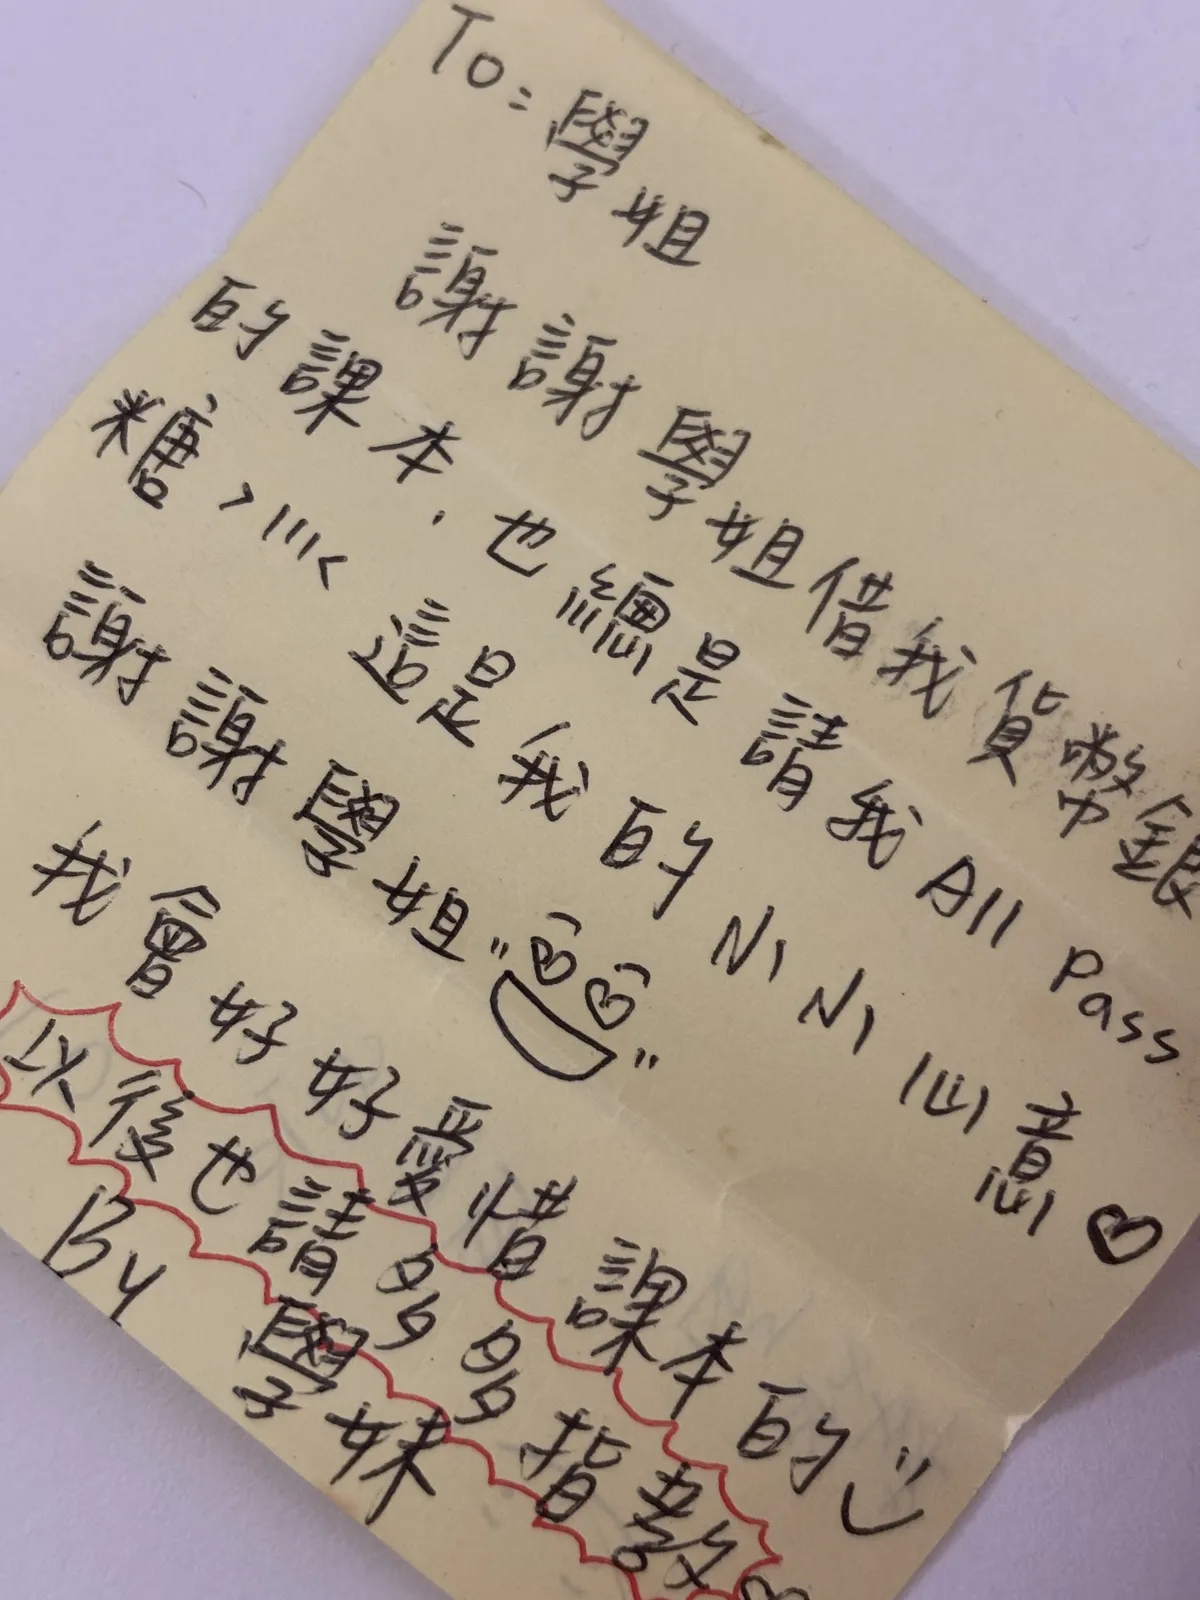 To: 學姐
謝謝學姐借我貨幣銀
的課本,也總是請我All Pass
糖 >///< 這是我的小小心意♡
謝謝學姐
我會好好愛惜課本的
以後也請多多指教♡
By 學妹